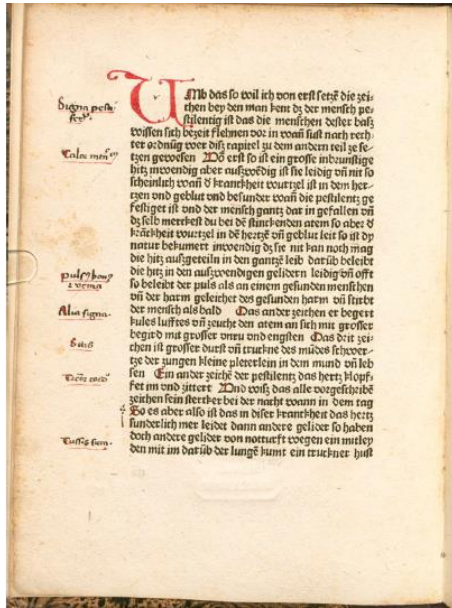 Vmb das so wil ich von erst setzē die zei-
chen bey den man kent dz der mensch pe
stilentig ist das die menschen dester basz
wissen sich bezeit flehnen vor in
ter ordnūg wer disz capitel zu dem andern teil ze se-
tzen gewesen Dʒ erst so ist ein grosse inbrunstige
hitz inwendig aber auszwēdig ist sie leidig vñ nit so
scheinlich wañ đ kranckheit wurtzel ist in dem her-
tzen vnd geblut vnd besunder wañ die pestilentz ge
festiget ist vnd der mensch gantz dar in gefallen vñ
dz selb merckest du bei dē stinckenden atem so aber đ
krāckheit wurtzel in dē hertzē vñ geblut leit so ist dy
natur bekumert inwendig dz sie nit kan noch mag
die hitz auszgeteiln in den gantzē leib darūb beleibt
die hitz in den auszwendigen gelidern leidig vñ offt
so beleibt der puls als an einem gesunden menschen
vñ der harm geleichet des gesunden harm vñ stirbt
der mensch als bald Das ander zeichen er begert
kules lufftes vñ zeucht den atem an sich mit grosser
begird mit grosser vnru vnd engsten Das drit zei-
chen ist grosser durst vñ truckne des mūdes schwer-
tze der zungen kleine pleterlein in dem mund vñ leb
sen Ein ander zeichē der pestilentz das hertz klopf-
fet im vnd zittert Vnd wisz das alle vorgeschribē
zeichen sein stercker bei der nacht wann in dem tag
So es aber also ist das in diser kranckheit das hertz
sunderlich mer leidet dann andere gelider so haben
doch andere gelider von notturfft wegen ein mitley
den mit im darūb der lungē kumt ein truckner hust
Signa pesti
Calor
puls9 bon9
Alia signa
Sitis
Tussis sicca